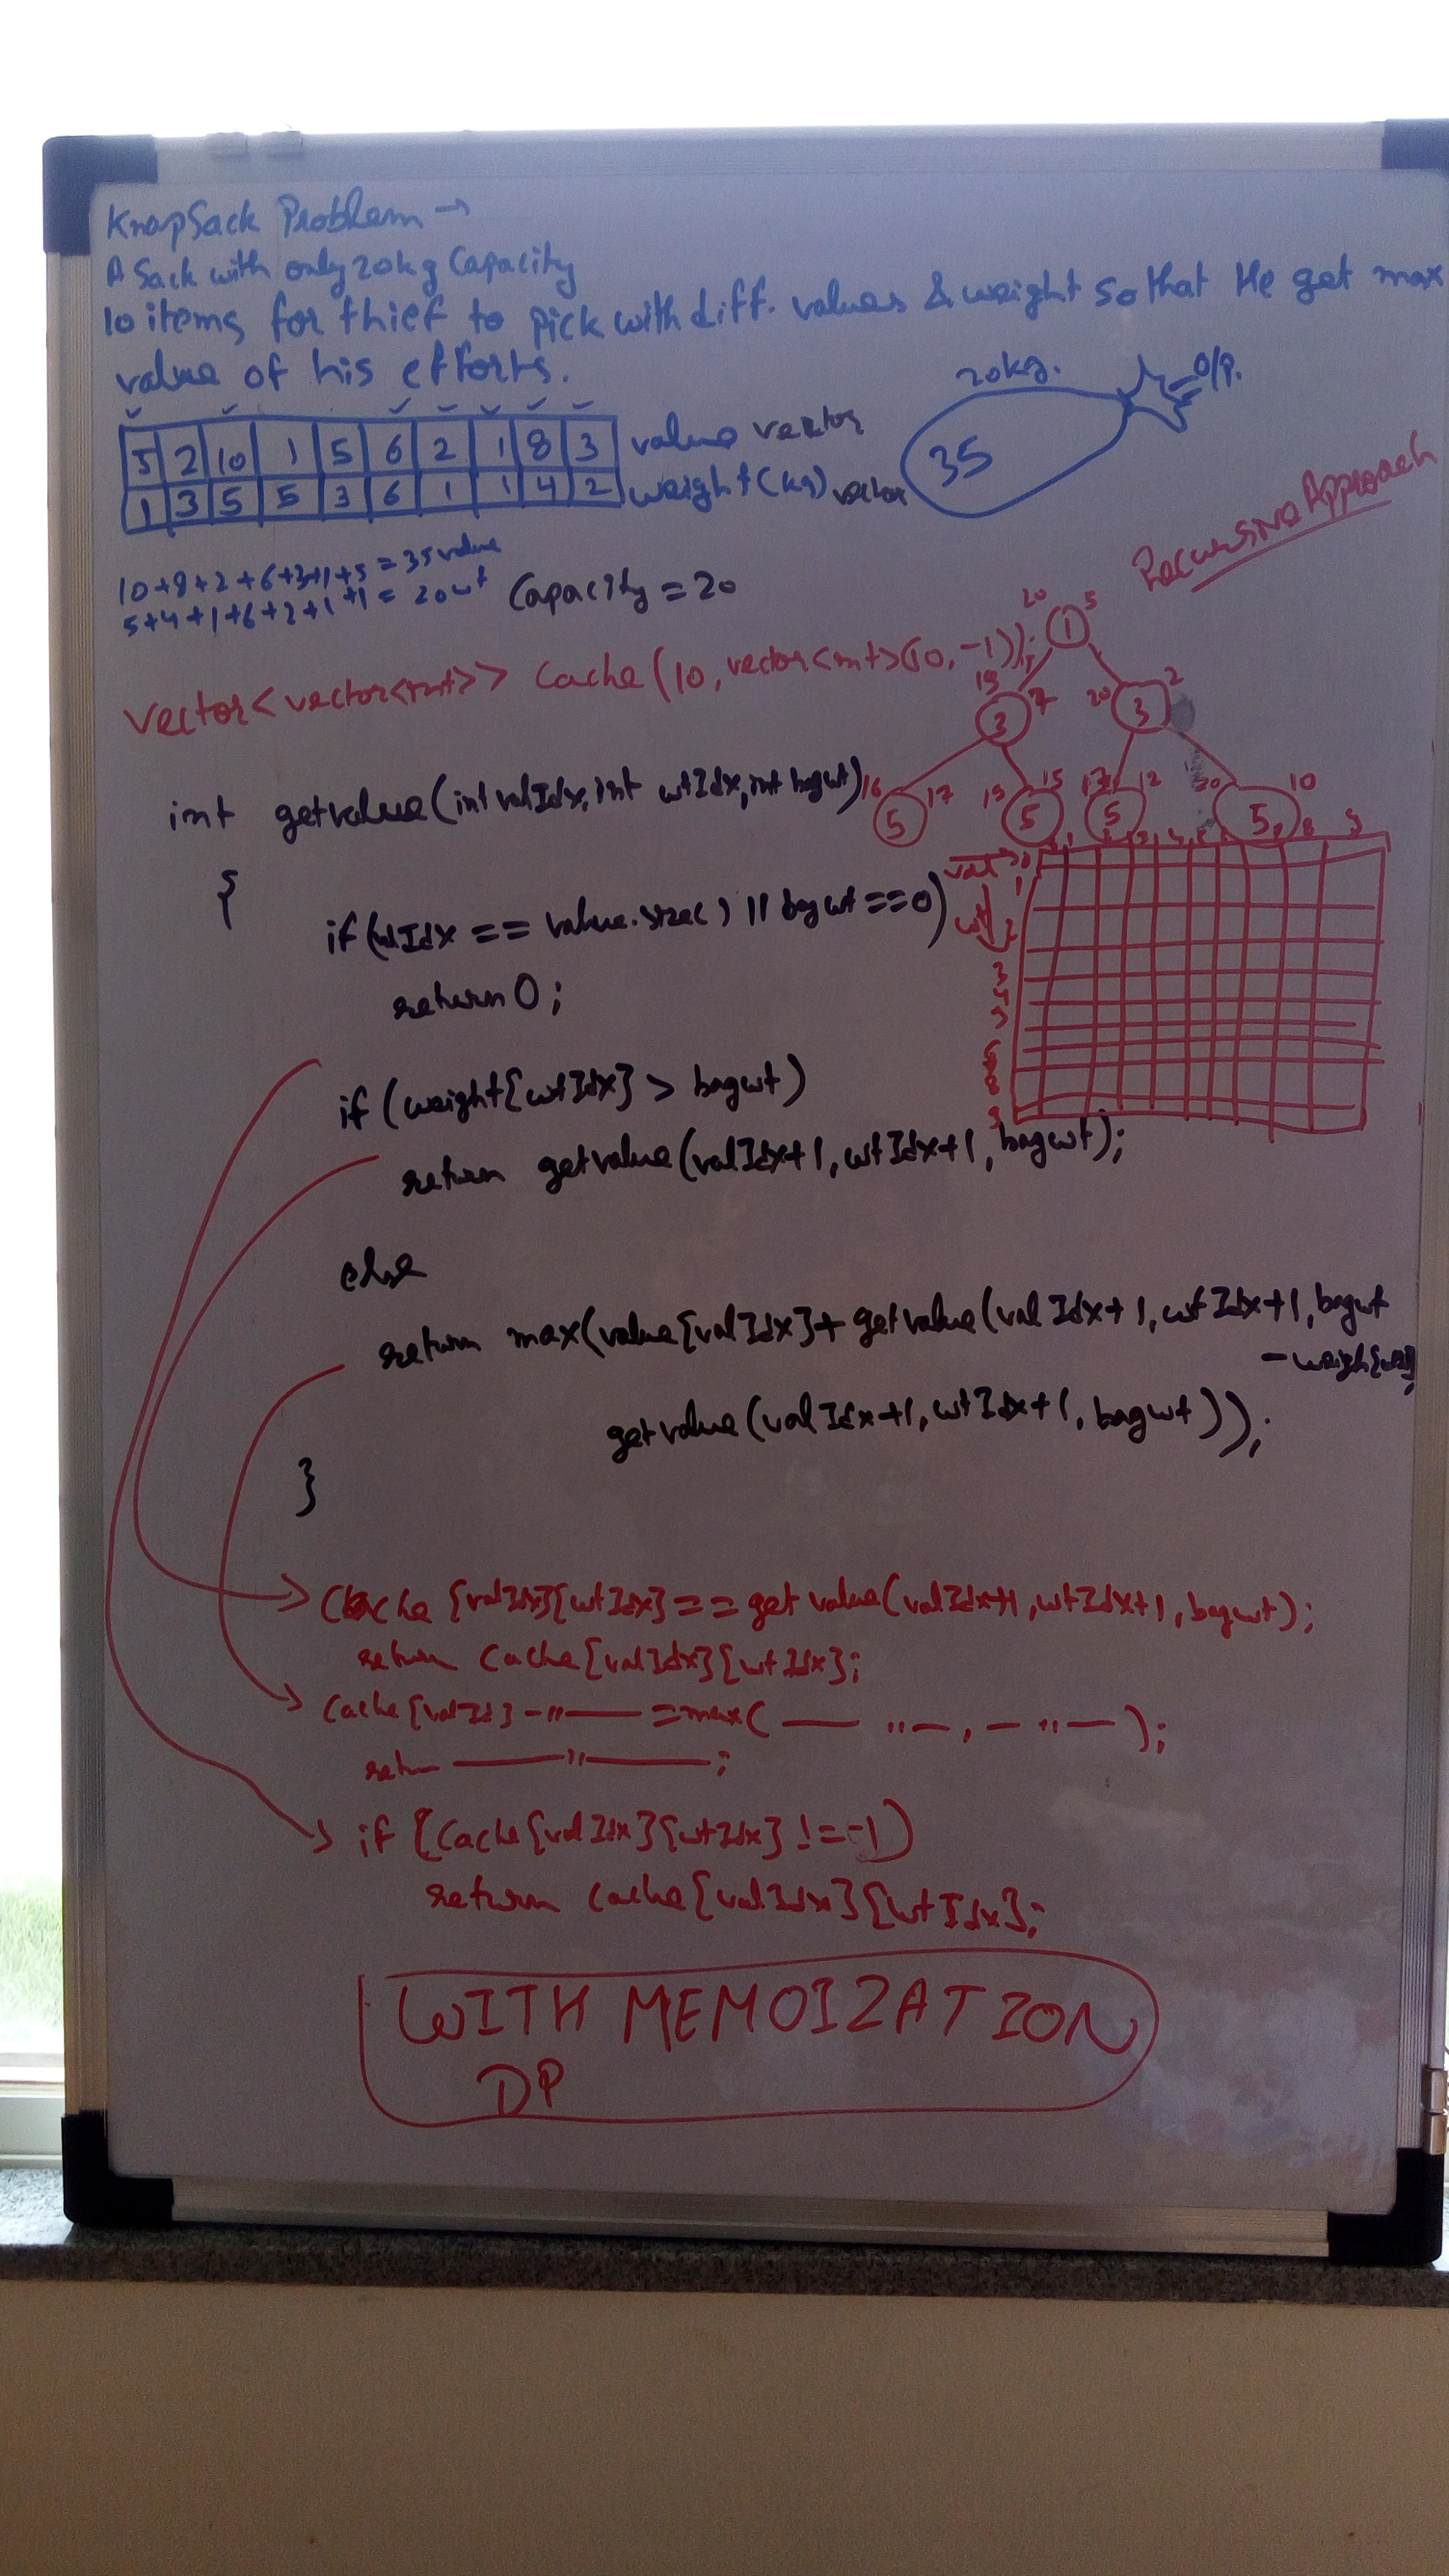 KnapSack Problem →
A Sack with only 20kg Capacity
10 items for thief to pick with diff. values & weight so that He get max
value of his efforts.
20kg.
= O/P.
35
5 2 10 1 5 6 2 1 8 3 value vector
1 3 5 5 3 6 1 1 4 2 weight (kg) vector
10+8+2+6+3+1+5 = 35 value
5+4+1+6+2+1+1 = 20 wt
Capacity = 20
Recursive Approach
vector<vector<int>> Cache(10, vector<int>(10, -1));
20 1 5
19 3 7 20 3 2
16 5 17 19 5 15 17 5 12 20 5 10
int getvalue(int valIdx, int wtIdx, int bagwt)
{
if(valIdx == value.size() || bagwt == 0)
return 0;
val →
wt
if (weight[wtIdx] > bagwt)
return getvalue(valIdx+1, wtIdx+1, bagwt);
else
return max(value[valIdx] + getvalue(valIdx+1, wtIdx+1, bagwt
getvalue(valIdx+1, wtIdx+1, bagwt));
}
Cache[valIdx][wtIdx] == getvalue(valIdx+1, wtIdx+1, bagwt);
return Cache[valIdx][wtIdx];
Cache[valId] -"— = max( — "—, — "— );
retun — " —;
if [Cache[valIdx][wtIdx] != -1)
return cache[valIdx][wtIdx];
WITH MEMOIZATION
DP